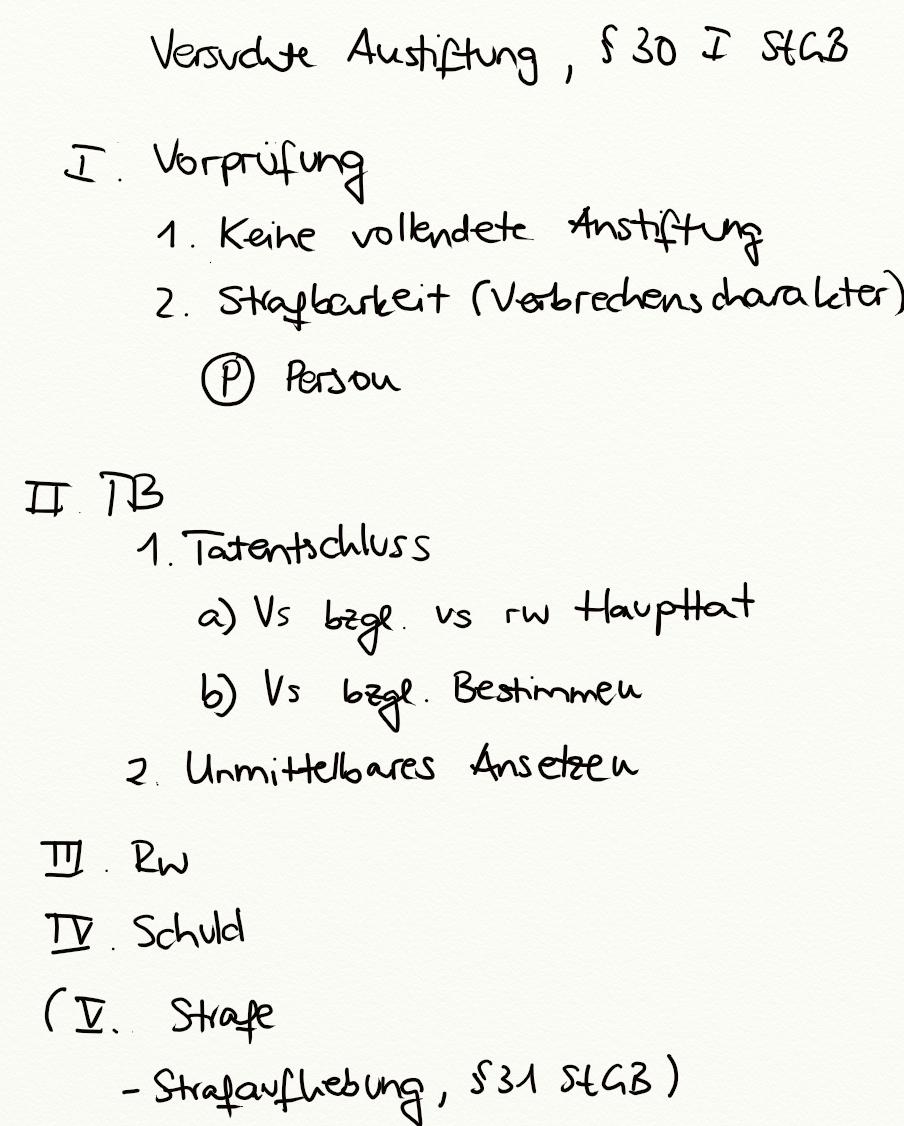 Versuchte Anstiftung, § 30 I StGB
I. Vorprüfung
1. Keine vollendete Anstiftung
2. Strafbarkeit (Verbrechenscharakter)
Ⓟ Person
II. TB
1. Tatentschluss
a) Vs bzgl. vs rw Haupttat
b) Vs bzgl. Bestimmen
2. Unmittelbares Ansetzen
III. Rw
IV. Schuld
(V. Strafe
- Strafaufhebung, § 31 StGB)